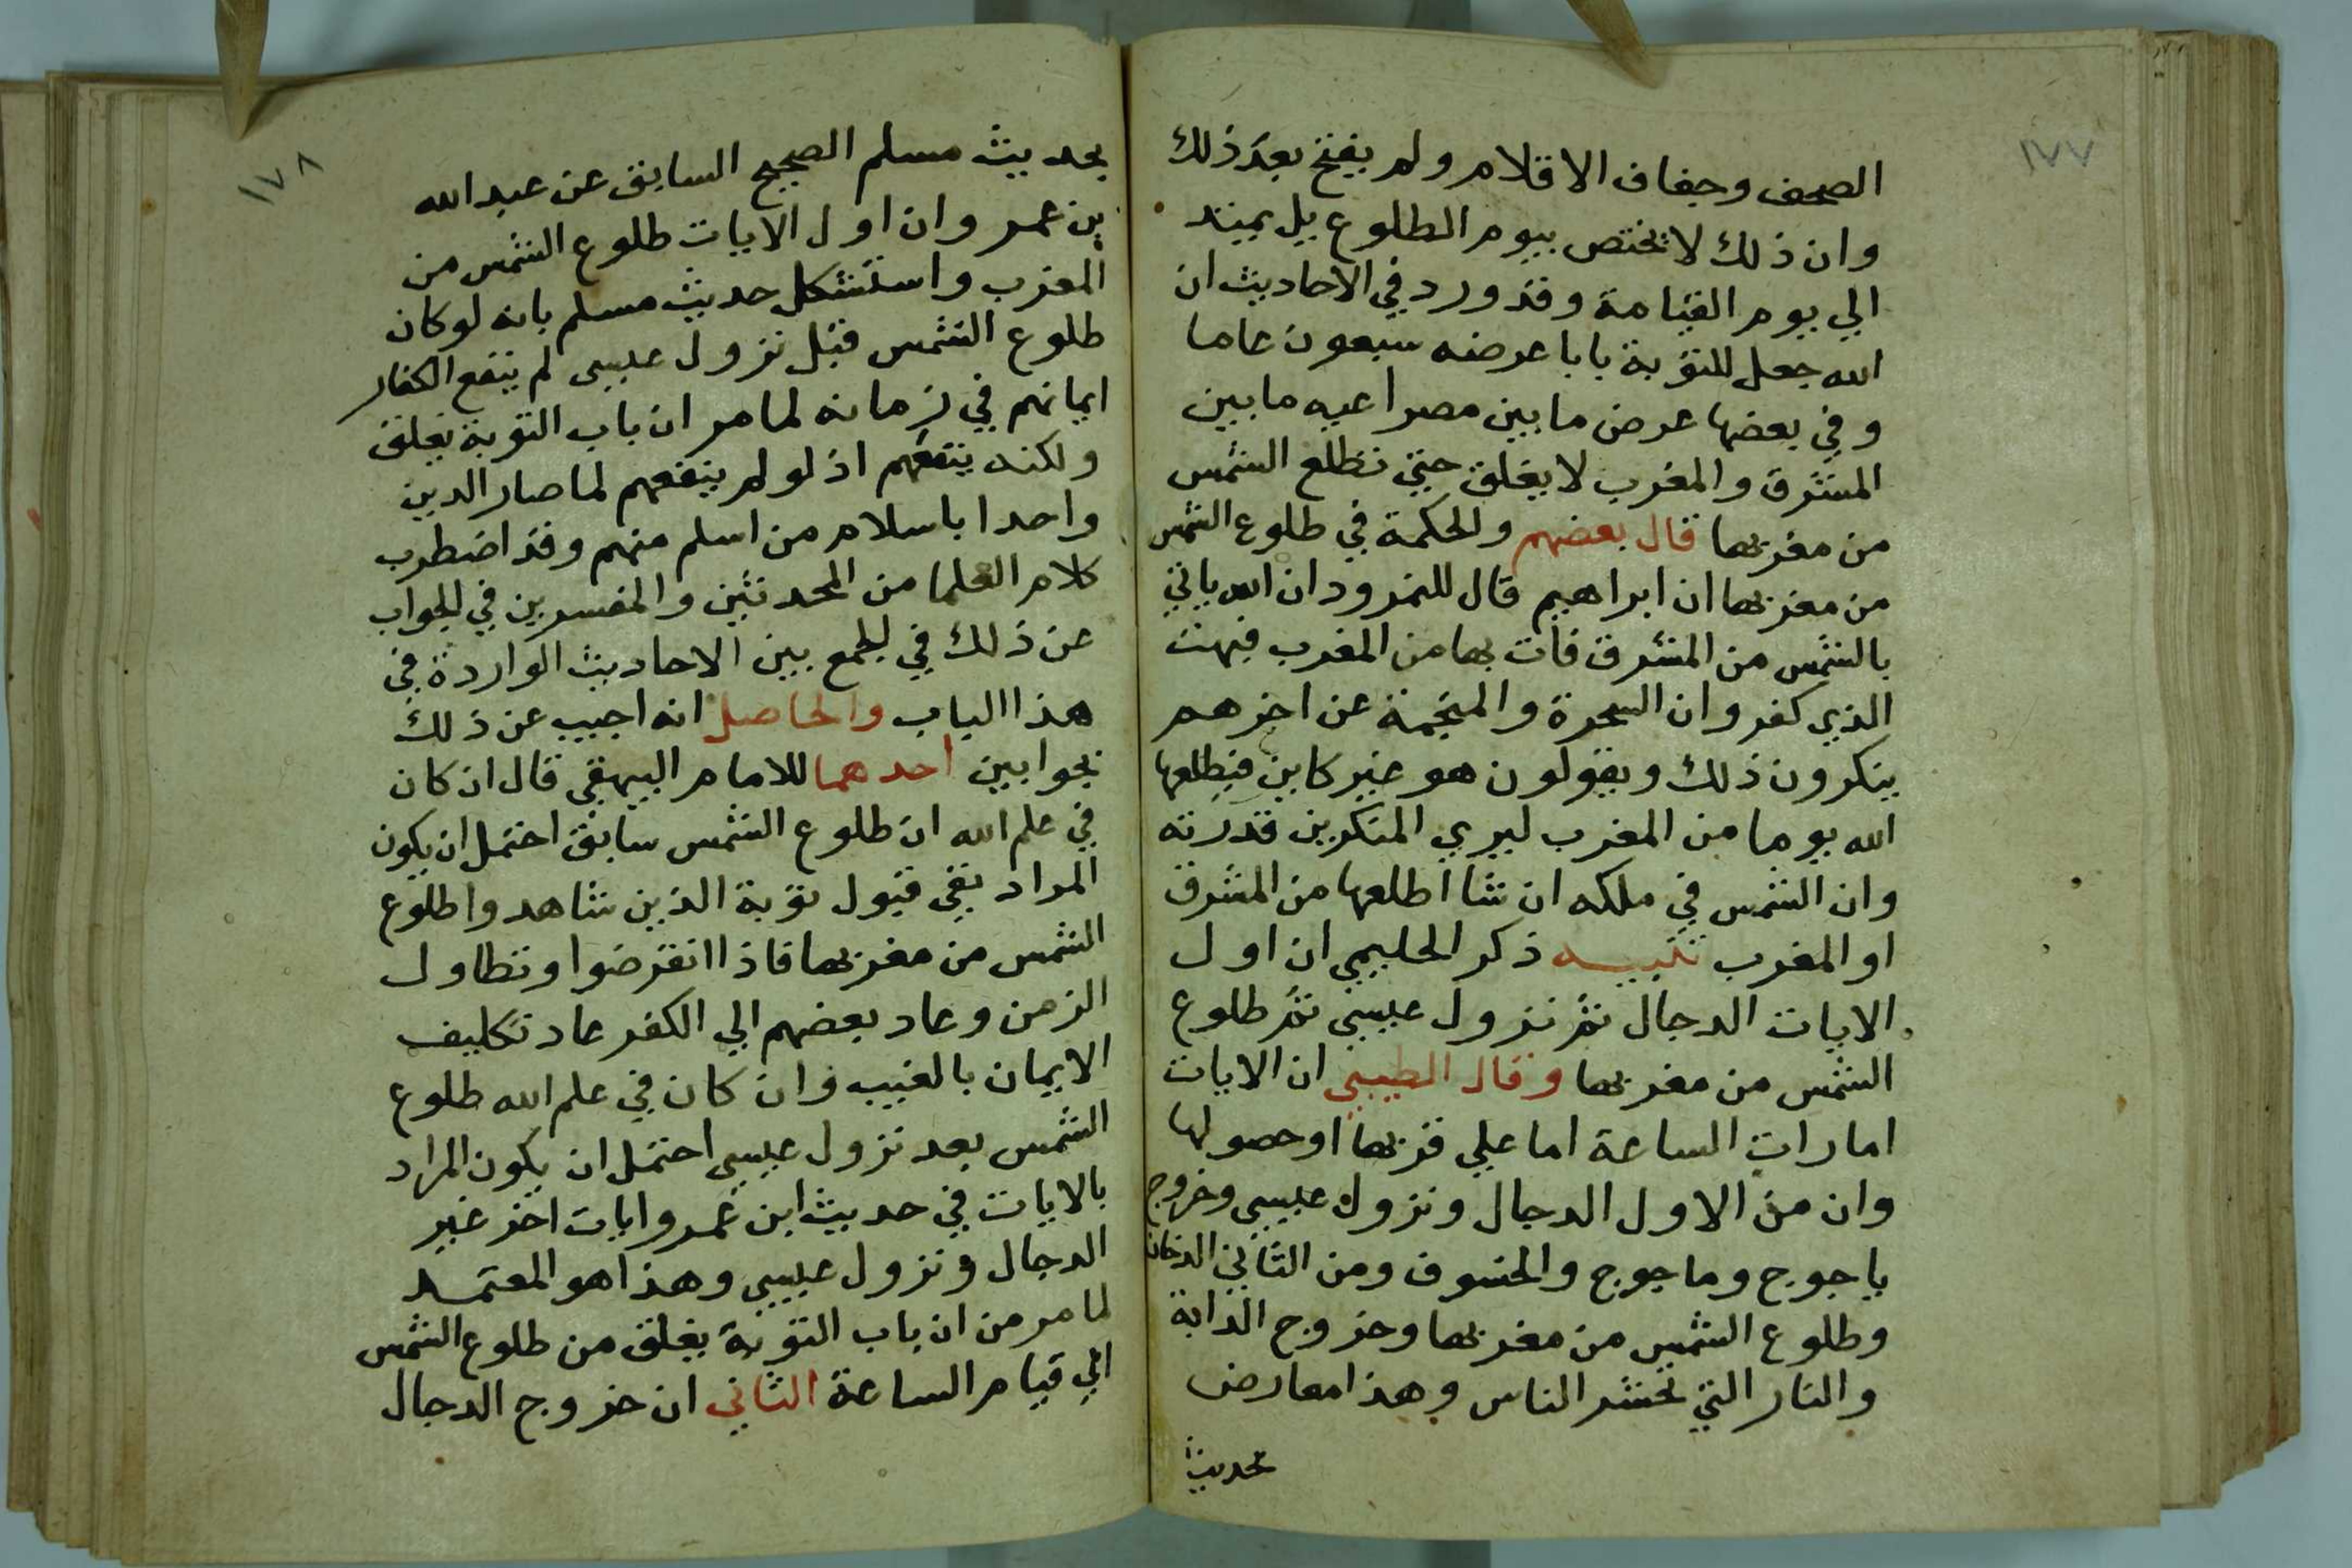 ١٧٧
الصحف وجفاف الاقلام ولم يفتح بعد ذلك
وان ذلك لا يختص بيوم الطلوع بل يمتد
الي يوم القيامة وقد ورد في الاحاديث ان
الله جعل للتوبة بابا عرضه سبعون عاما
وفي بعضها عرض ما بين مصراعيه ما بين
المشرق والمغرب لا يغلق حتي تطلع الشمس
من مغربها قال بعضهم والحكمة في طلوع الشمس
من مغربها ان ابراهيم قال للنمرود ان الله ياتي
بالشمس من المشرق فات بها من المغرب فبهت
الذي كفر وان السحرة والمنجمة عن اخرهم
ينكرون ذلك ويقولون هو غير كاين فيطلعها
الله يوما من المغرب ليري المنكرين قدرته
وان الشمس في ملكه ان شا اطلعها من المشرق
او المغرب تنبيه ذكر الحليمي ان اول
الايات الدجال ثم نزول عيسي ثم طلوع
الشمس من مغربها وقال الطيبي ان الايات
امارات الساعة اما علي قربها او حصولها
وان من الاول الدجال ونزول عيسي وخروج
ياجوج وماجوج والخسوف ومن الثاني الدخان
وطلوع الشمس من مغربها وخروج الدابة
والنار التي تحشر الناس وهذا معارض
بحديث
١٧٨
بحديث مسلم الصحيح السابق عن عبد الله
بن عمر وان اول الايات طلوع الشمس من
المغرب واستشكل حديث مسلم بانه لو كان
طلوع الشمس قبل نزول عيسى لم ينفع الكفار
ايمانهم في زمانه لما مر ان باب التوبة يغلق
ولكنه ينفعهم اذ لو لم ينفعهم لما صار الدين
واحدا باسلام من اسلم منهم وقد اضطرب
كلام العلما من المحدثين والمفسرين في الجواب
عن ذلك في الجمع بين الاحاديث الواردة في
هذا الباب والحاصل انه اجيب عن ذلك
بجوابين احدهما للامام البيهقي قال ان كان
في علم الله ان طلوع الشمس سابق احتمل ان يكون
المراد نفي قبول توبة الذين شاهدوا طلوع
الشمس من مغربها فاذا انقرضوا وتطاول
الزمن وعاد بعضهم الي الكفر عاد تكليف
الايمان بالغيب وان كان في علم الله طلوع
الشمس بعد نزول عيسي احتمل ان يكون المراد
بالايات في حديث ابن عمرو ايات اخر غير
الدجال ونزول عيسي وهذا هو المعتمد
لما مر من ان باب التوبة يغلق من طلوع الشمس
الي قيام الساعة الثاني ان خروج الدجال